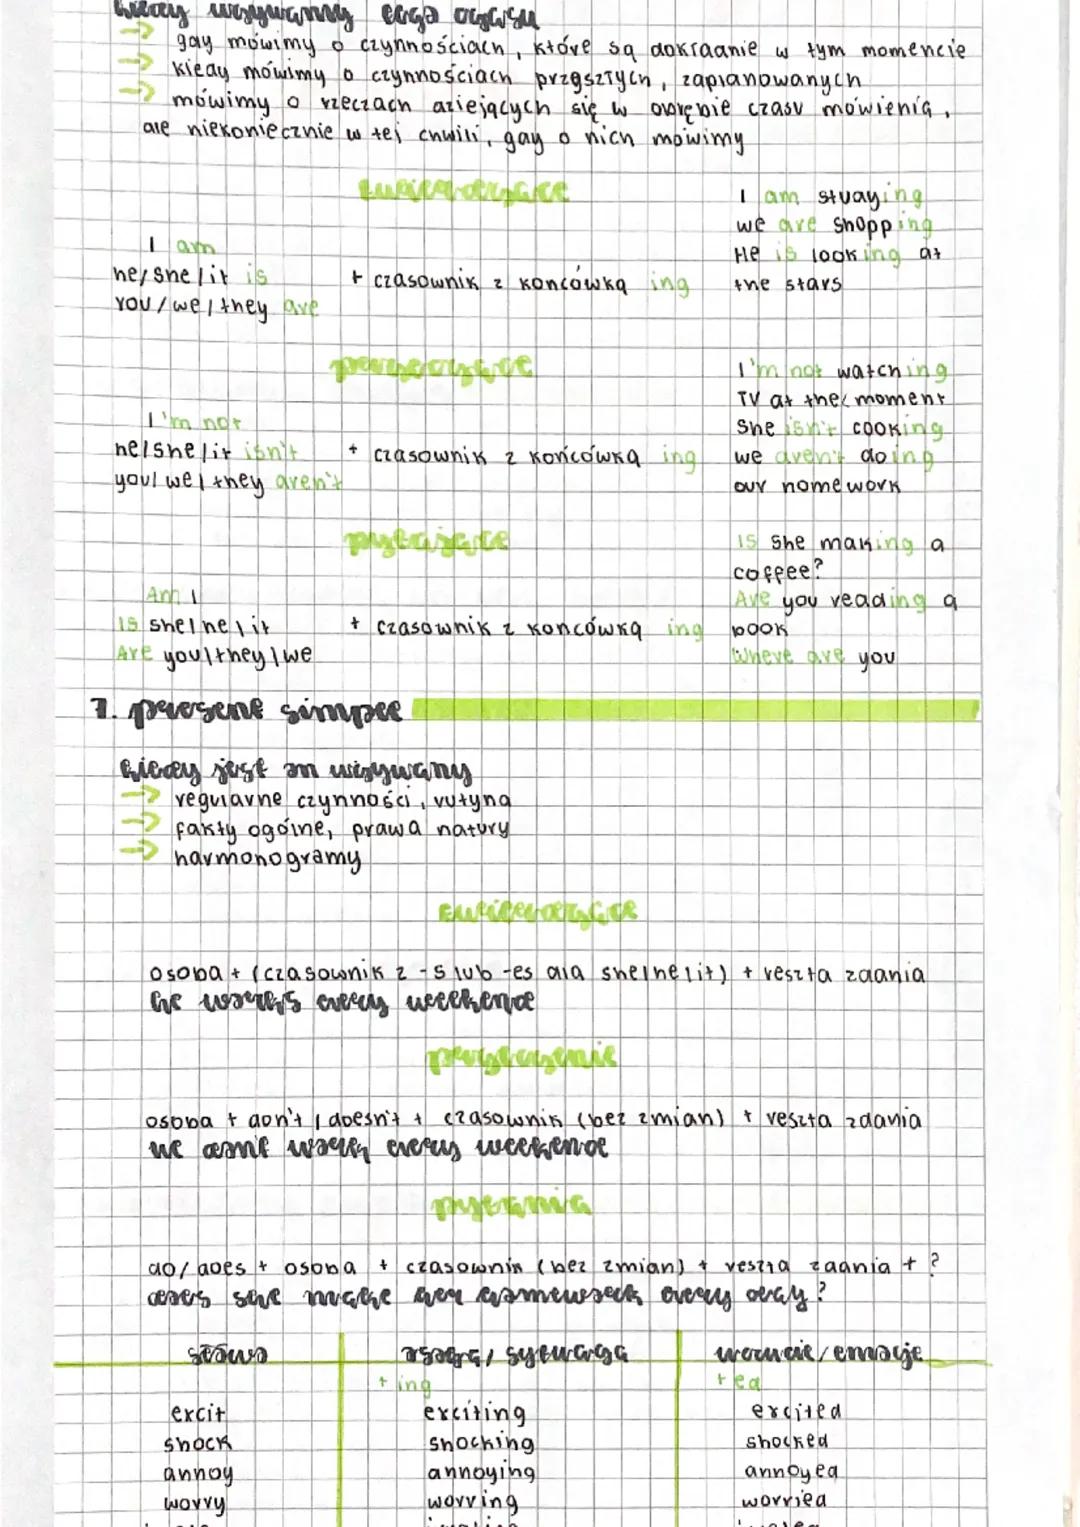 kiedy używamy tego czasu
→ gdy mówimy o czynnościach, które są dokładnie w tym momencie
→ kiedy mówimy o czynnościach przyszłych, zaplanowanych
→ mówimy o rzeczach dziejących się w okresie czasu mówienia,
ale niekoniecznie w tej chwili, gdy o nich mówimy
twierdzące
I am studying
we are shopping
He is looking at
the stars
I am
he/she/it is
You/we/they are
+ czasownik z końcówką ing
przeczące
I'm not watching
TV at the moment
She isn't cooking
we aren't doing
our homework
I'm not
he/she/it isn't
you/we/they aren't
+ czasownik z końcówką ing
pytające
Is she making a
coffee?
Are you reading a
book
Where are you
Am I
Is she/he/it
Are you/they/we
+ czasownik z końcówką ing
7. present simple
kiedy jest on używany
→ regularne czynności, rutyna
→ fakty ogólne, prawa natury
→ harmonogramy
twierdzące
osoba + (czasownik z -s lub -es dla she/he/it) + reszta zdania
he works every weekend
przeczenie
osoba + don't / doesn't + czasownik (bez zmian) + reszta zdania
we don't work every weekend
pytania
do/does + osoba + czasownik (bez zmian) + reszta zdania + ?
does she make her homework every day?
słowo
rzecz/sytuacja
uczucie/emocje
+ ing
+ ed
excit
exciting
excited
shock
shocking
shocked
annoy
annoying
annoyed
worry
worring
worried